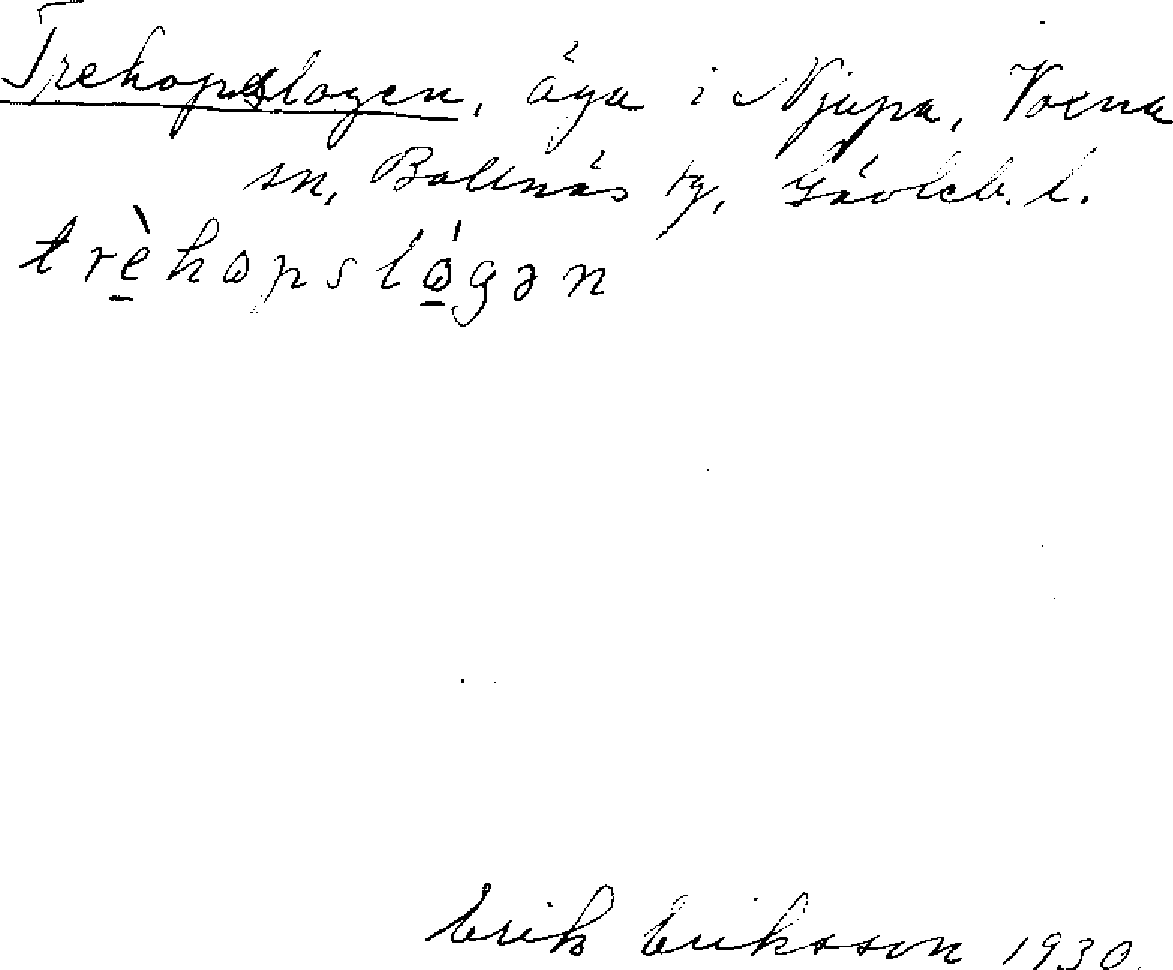 Trekopslogen, äga i Njupa, Voxna
sn, Bollnäs tg, Gävleb. l.
trèkopslógən
Erik Eriksson 1930.